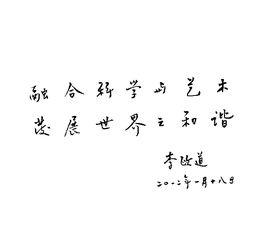 融合科学与艺术
发展世界之和谐
李政道
二〇〇二年一月十八日